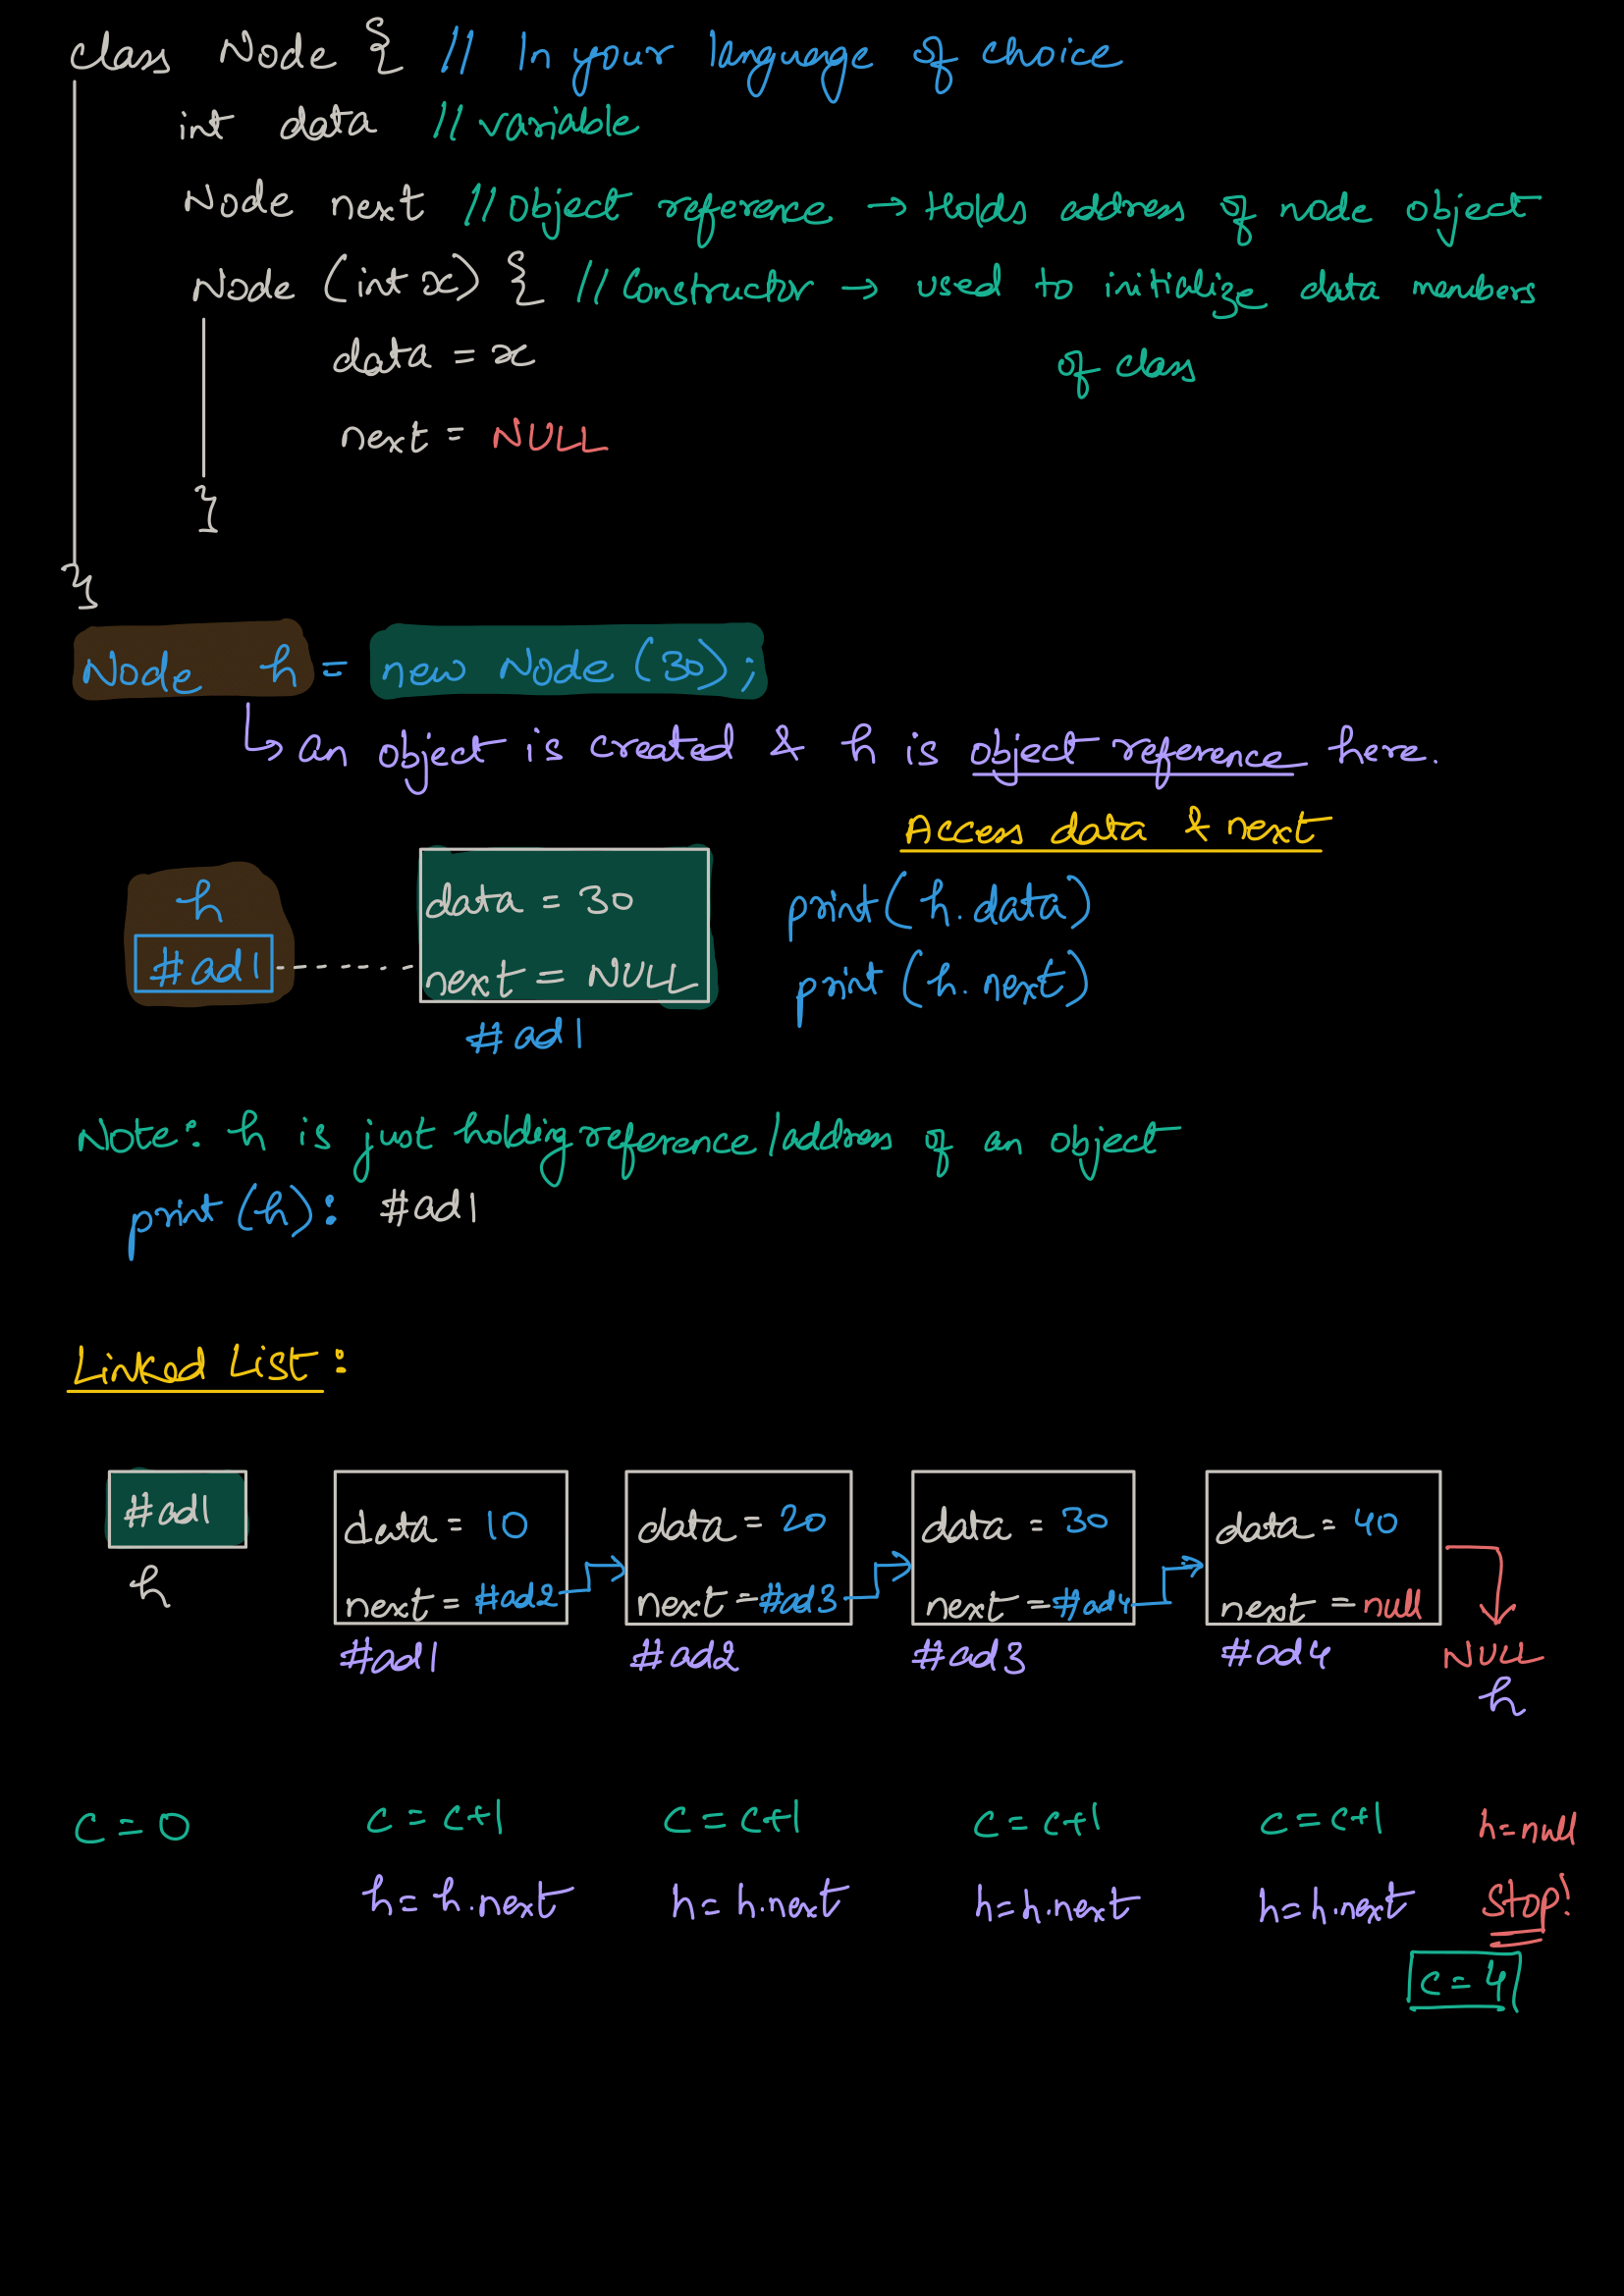 class Node { // In your language of choice
int data // variable
Node next // Object reference → Holds address of node object
Node (int x) { // Constructor → used to initialize data members
of class
data = x
next = NULL
}
}
Node h = new Node (30);
↳ an object is created & h is object reference here.
Access data & next
h
#ad1
data = 30
next = NULL
#ad1
print(h.data)
print (h.next)
Note: h is just holding reference/address of an object
print(h): #ad1
Linked List:
#ad1
h
data = 10
next = #ad2
#ad1
data = 20
next = #ad3
#ad2
data = 30
next = #ad4
#ad3
data = 40
next = null
#ad4
NULL
h
c = 0 c = c+1 c = c+1 c = c+1 c = c+1 h=null
h = h.next h = h.next h = h.next h = h.next Stop!
c = 4